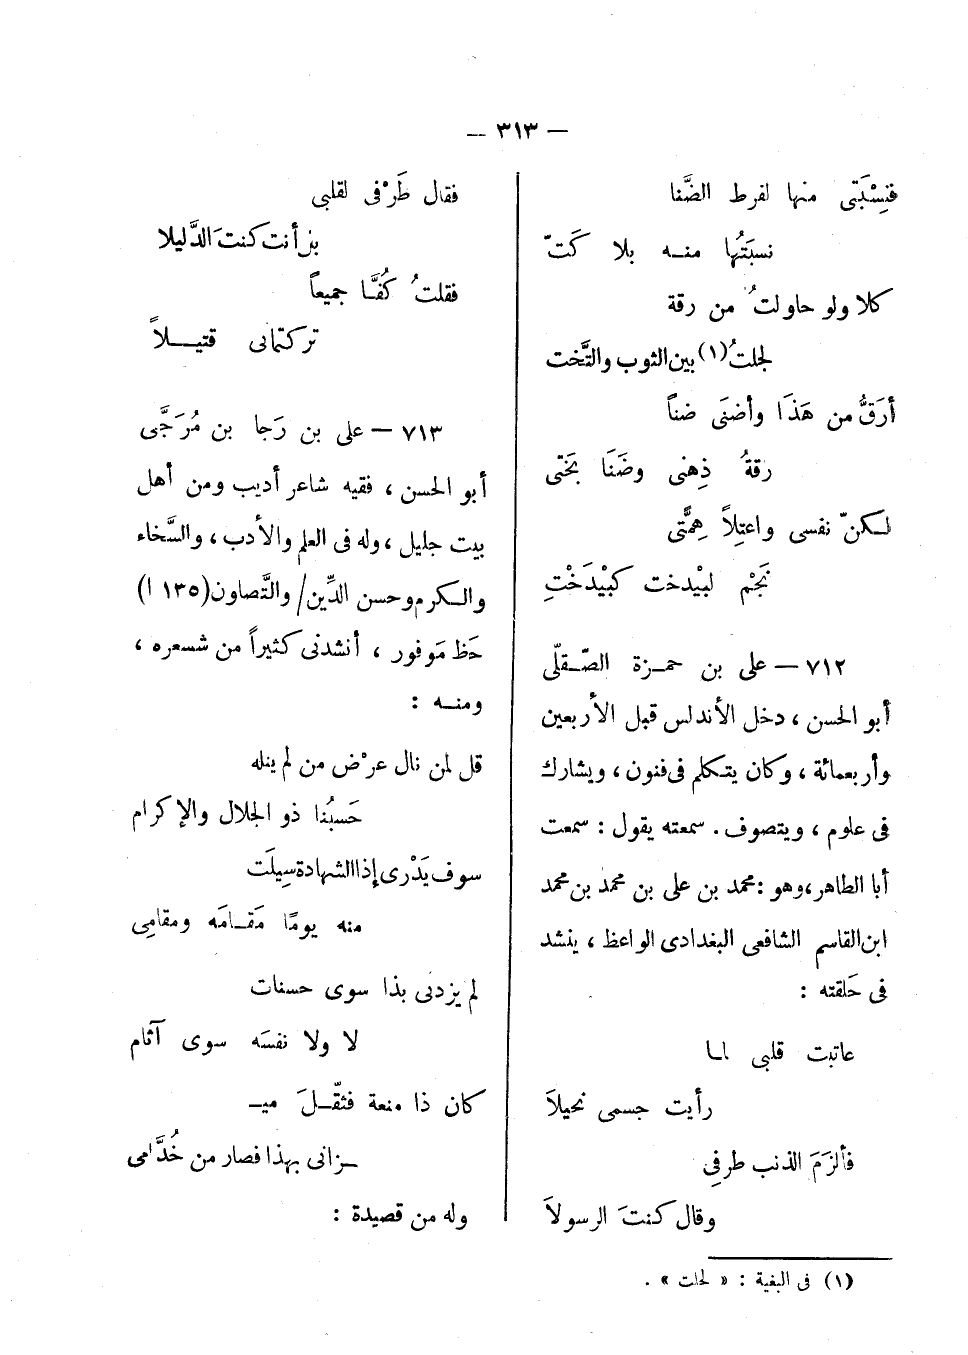 — ٣١٣ —
فنِسْبَتَى منها لفرط الضَّنا
نسبَتُها منـه بلا كَتّ
كلا ولو حاولتُ من رقة
لجلتُ(١) بين الثوب والتَّخت
أرَقُّ من هَذَا وأضنَى ضناً
رقةُ ذِهنى وضَنَا بَختى
لـكنّ نفسى واعتِلاً هِمَّتى
نَجْم لبْيدخت كبْيدَخْتِ
٧١٢ — على بن حمـزة الصّـقلّى
أبو الحسن ، دخل الأندلس قبل الأربعين
وأربعمائة ، وكان يتكلم فى فنون ، ويشارك
فى علوم ، ويتصوف . سمعته يقول : سمعت
أبا الطاهر ، وهو : محمد بن على بن محمد بن محمد
ابن القاسم الشافعى البغدادى الواعظ ، ينشد
فى حَلقته :
عاتبت قلبى لمـا
رأيت جسمى نحيلاَ
فألزَمَ الذنب طرفِى
وقال كنتَ الرسولاَ
فقال طَرْفى لقلبى
بل أنت كنتَ الدَّليلا
فقلتُ كُفَّـا جميعاً
تركتمانى قتيـــلاً
٧١٣ — على بن رَجا بن مُرَجَّى
أبو الحسن ، فقيه شاعر أديب ومن أهل
بيت جليل ، وله فى العلم والأدب ، والسَّخاء
والـكرم وحسن الدِّين/ والتَّصاون (١٣٥ ا)
حَظ مَوفور ، أنشدنى كثيراً من شـعره ،
ومنـه :
قل لمن نال عرْض من لم ينله
حَسبُنا ذو الجلال والإكرام
سوف يَدْرى إذا الشهادة سِيلَت
منه يومًا مَقـامَه ومقامِى
لم يزدنى بذا سوى حسنات
لا ولا نفسَه سوى آثام
كان ذا منعة فثقّـلَ ميـ
ـزانى بهذا فصار من خُدَّامى
وله من قصيدة :
(١) فى البغية : « لحلت » .